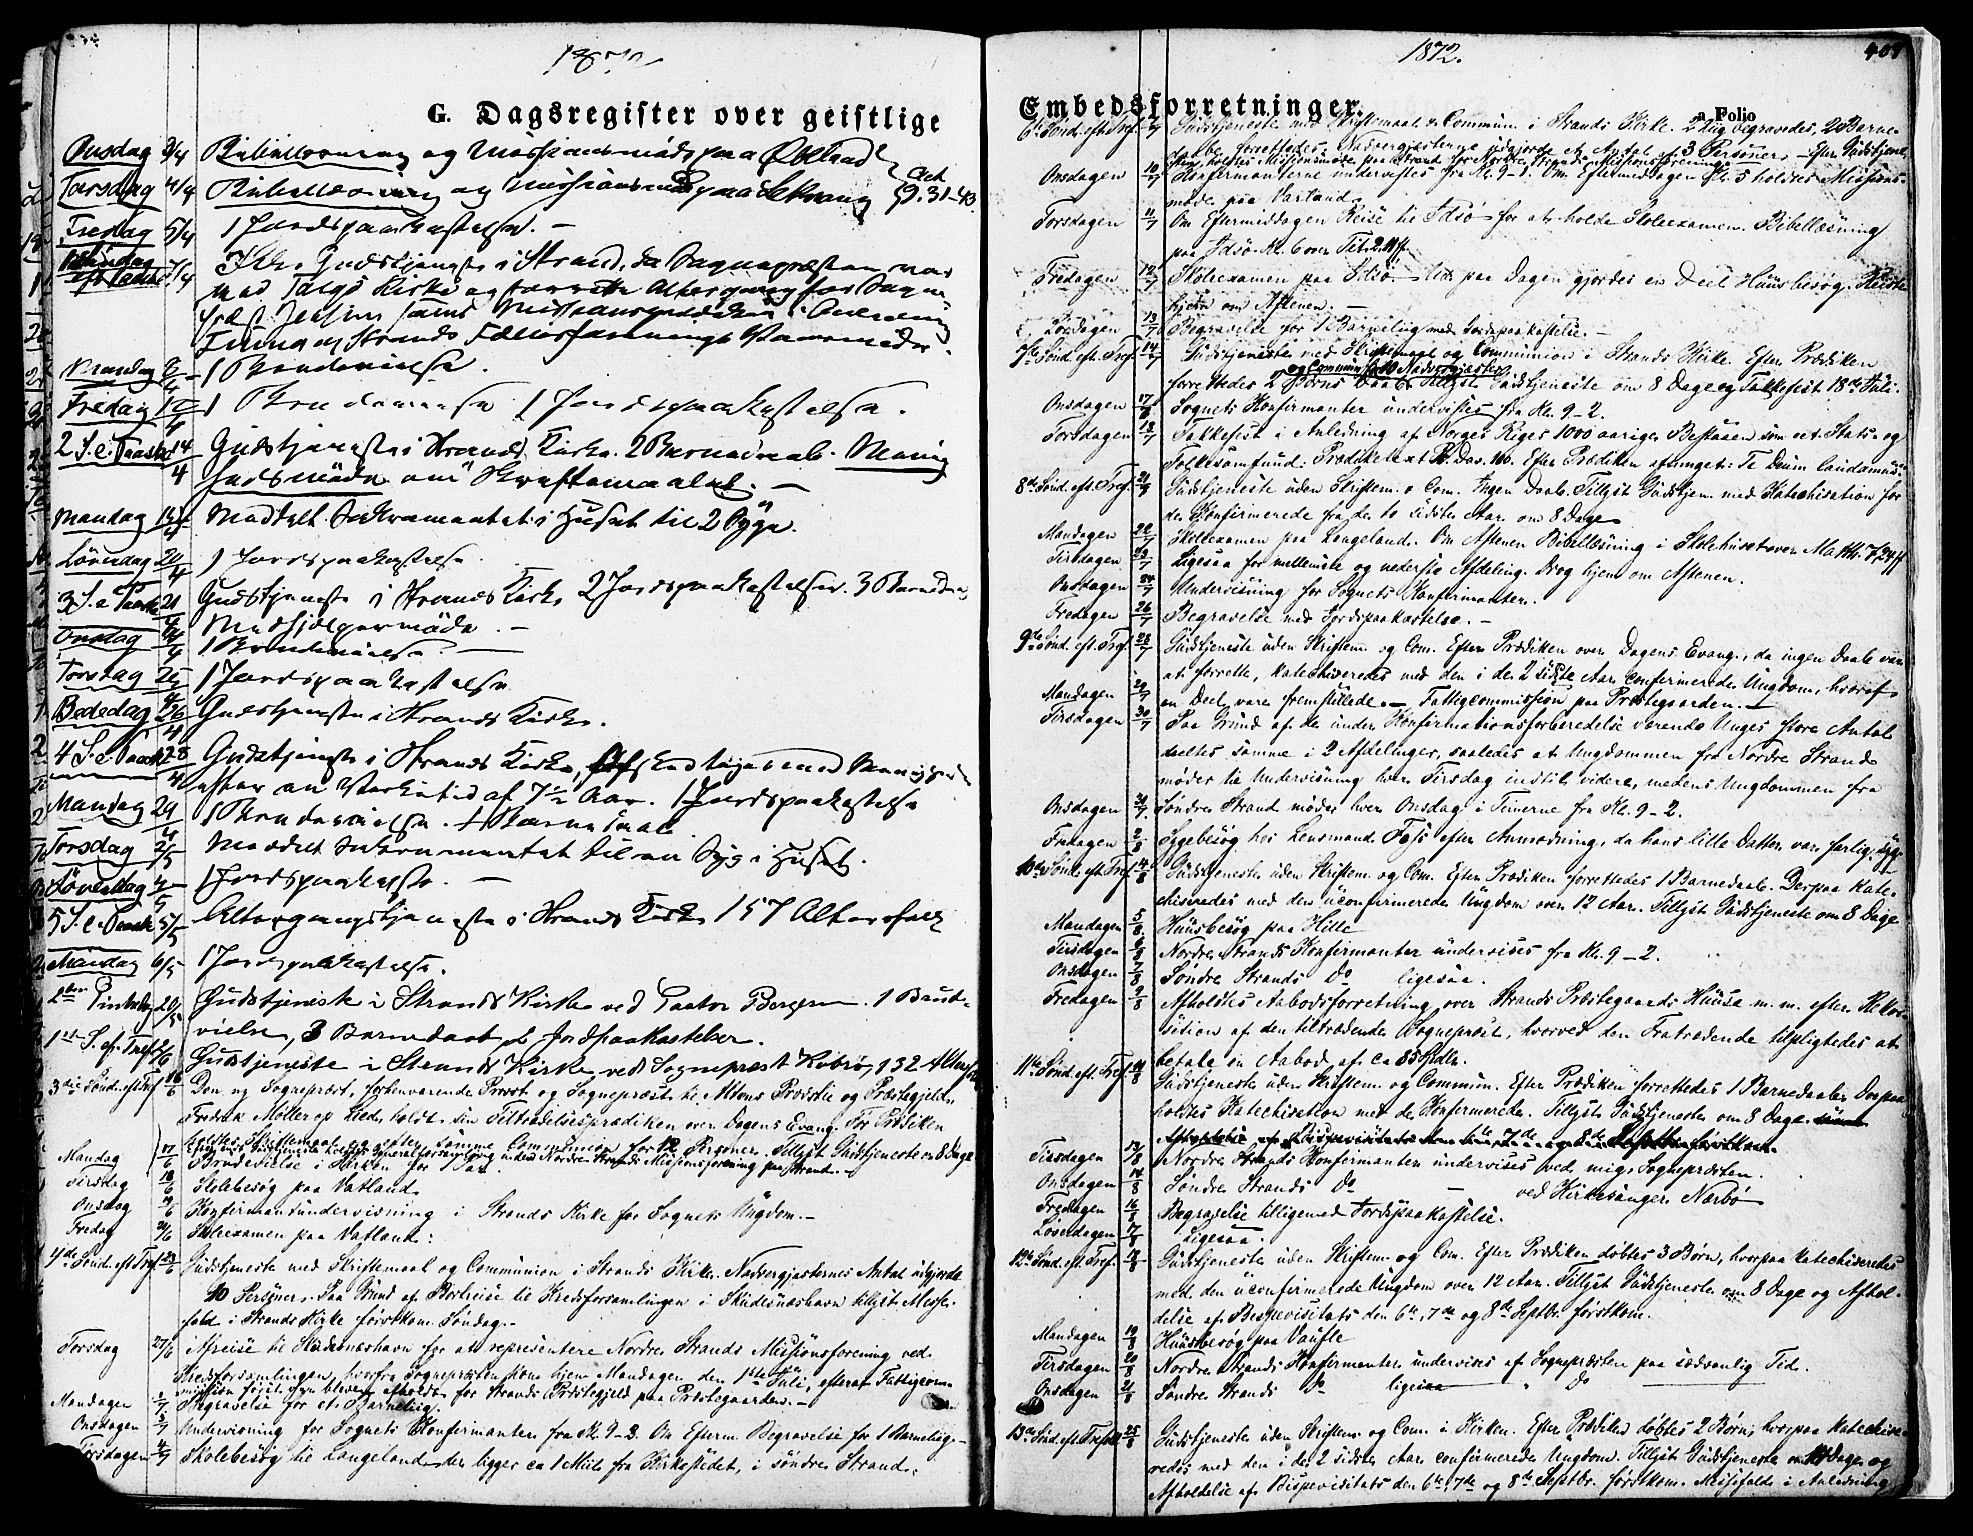 1872
G. Dagsregister over geistlige
Onsdag 3/4 Bibellæsning og Missionsmöde paa
Torsdag 4/4 Bibellæsning og Missionsmöde paa
Act 9.31-43
Fredag 5/4 1 Jordspaakastelse. –
7/4 Gudstjeneste i Strand, da Sognepræsten var
med Kirke og forrette Altergang for Sogne-
Mandag 8/4 1 Brudevielse.
Fredag 12/4 1 Brudevielse 1 Jordspaakastelse.
2 S. e. Paaske 14/4 Gudstjeneste i Strands Kirke. 2 Barnedaab. Menig
hedsmöde om Skriftemaalet. –
Mandag 15/4 Meddelt Sakramentet i Huset til 2 Syge.
Löverdag 20/4 1 Jordspaakastelse.
3 S. e. Paaske 21/4 Gudstjeneste i Strands Kirke 2 Jordspaakastelser. 3 Barned
Medhjelpermöde. –
Onsdag 24/4 1 Brudevielse. –
Torsdag 25/4 1 Jordspaakastelse
Bededag 26/4 Gudstjeneste i Strands Kirke.
4 S. e. Paaske 28/4 Gudstjeneste i Strands Kirke, Afskedtagen med Menigheden
efter en Virketid af 7½ Aar. 1 Jordspaakastelse
Mandag 29/4 1 Brudevielse. 1 Barnedaab.
Torsdag 2/5 Meddelt Sakramentet til en Syg i Huset.
Löverdag 4/5 1 Jordspaakastelse. –
5 S. e. Paaske 5/5 Altergangstjeneste i Strands Kirke 157 Altersfolk
Mandag 6/5 1 Jordspaakastelse.
2den Pintsedag 20/5 Gudstjeneste i Strands Kirke ved Pastor Bergesen. 1 Brude-
vielse, 3 Barnedaab, 2 Jordpaakastelser.
1ste S. ef. Tref. 2/6 Gudstjeneste i Strands Kirke ved Sognepræst Kobrö, 132 Altersfolk
3die Sönd. eft. Tref. 16/6 Den ny Sognepræst, forhenværende Provst og Sognepræst til Altens Provstie og Præstegjeld,
Fredrik Möller op Lied, holdt sin Tiltrædelsesprædiken over Dagens Evang. För Prædiken
holdtes Skriftemaal og efter samme Communion for 12 Personer. Tillyst Gudstjeneste om 8 Dage
Mandag 17/6 Brudevielse i Kirken for 1 Par.
Tirsdag 18/6 Skolebesög paa Vatland.
Onsdag 19/6 Konfirmantundervisning i Strands Kirke for Sognets Ungdom. –
Fredag 21/6 Skolexamen paa Vatland:
4de Sönd. eft. Tref. 23/6 Gudstjeneste med Skriftemaal og Communion i Strands Kirke. Nadvergjæsternes Antal udgjorde
40 Personer. Paa Grund af Bortreise til Kredsforsamlingen i Skudesnæshavn tillyst Messe-
fald i Strands Kirke förstkom. Söndag. –
Torsdag 27/6 Afreise til Skudesnæshavn for at repræsentere Nordre Strands Missionsforening ved
Kredsforsamlingen, hvorfra Sognepræsten kom hjem Mandagen den 1ste Juli, efterat Fattigcom-
mission forinden blev afholdt for Strands Præstegjeld paa Præstegaarden. –
Mandagen 1/7 Begravelse for et Barnelig.
Onsdagen 3/7 Undervisning for Sognets Konfirmanter fra Kl. 9–3. Om Efterm. Begravelse for 1 Barnelig. –
Torsdagen 4/7 Skolebesög til Langeland, der ligger ca 1 Miil fra Kirkestedet, i söndre Strand.
1872.
Embedsforretninger.
a Folio
409
6te Sönd. eft. Tref. 7/7 Gudstjeneste med Skriftemaal & Commun. i Strands Kirke. 2 Liig begravedes, 2 Barne-
daabe forrettedes. Nadvergjæsterne udgjorde et Antal af 3 Personer. – Efter Gudstjene-
sten holdtes Missionsmöte paa Strand for Nordre Strands Missionsforening.
Onsdagen 10/7 Konfirmanterne undervistes fra Kl. 9–1. Om Eftermiddagen Kl. 5 holdtes Missions-
möde paa Vatland.
Torsdagen 11/7 Om Eftermiddagen Reise til Idsö for at holde Skoleexamen. Bibellæsning
paa Idsö Kl. 6 over Tit. 2.11 ff.
Fredagen 12/7 Skolexamen paa Idsö. Ud paa Dagen gjordes en Deel Huusbesög. Reiste
hjem om Aftenen. –
Löverdagen 13/7 Begravelse for 1 Barnelig med Jordspaakastelse. –
7de Sönd. eft. Tref. 14/7 Gudstjeneste med Skriftemaal og Communion i Strands Kirke. Efter Prædiken
og Commun. for 10 Nadvergjæster
forrettedes 2 Börns Daab. Tillyst Gudstjeneste om 8 Dage og Takkefest 18de Juli.
Onsdagen 17/7 Sognets Konfirmanter undervistes fra Kl. 9–2.
Torsdagen 18/7 Takkefest i Anledning af Norges Riges 1000 aarige Bestaaen som eet Stats- og
Folkesamfund. Prædiketext Ps. Dav. 100. Efter Prædiken afsunget: Te Deum laudamus.
8de Sönd. eft. Tref. 21/7 Gudstjeneste uden Skriftem. & Com. Ingen Daab. Tillyst Gudstjen. med Katechisation for
de Konfirmerede fra de to sidste Aar om 8 Dage
Mandagen 22/7 Skolexamen paa Langeland. Om Aftenen Bibellæsning i Skolehuset over Matth. 7,24 ff
Tirsdagen 23/7 Ligesaa for mellemste og nederste Afdeling. Drog hjem om Aftenen.
Onsdagen 24/7 Undervisning for Sognets Konfirmanter.
Fredagen 26/7 Begravelse med Jordspaakastelse. –
9de Sönd. eft. Tref. 28/7 Gudstjeneste uden Skriftem. og Com. Efter Prædiken over Dagens Evang., da ingen Daab var
at forrette, katechiseredes med den i de 2 sidste Aar confirmerede Ungdom, hvoraf
Mandagen 29/7 en Deel vare fremstillede. – Fattigcommission paa Præstegaarden. –
Tirsdagen 30/7 Paa Grund af de under Konfirmationsforberedelse værende Unges store Antal
deeltes samme i 2 Afdelinger, saaledes at Ungdommen fra Nordre Strand
möder til Undervisning hver Tirsdag indtil videre, medens Ungdommen fra
Onsdagen 31/7 Söndre Strand möder hver Onsdag i Timerne fra Kl. 9–2.
Fredagen 2/8 Sygebesög hos Lensmand Fafs efter Anmodning, da hans lille Datter var farlig syg.
10de Sönd. eft. Tref. 4/8 Gudstjeneste uden Skriftem. og Com. Efter Prædiken forrettedes 1 Barnedaab. Derpaa kate-
chiseredes med den uconfirmerede Ungdom over 12 Aar. Tillyst Gudstjeneste om 8 Dage
Mandagen 5/8 Huusbesög paa Hille
Tirsdagen 6/8 Nordre Strands Konfirmanter undervises fra Kl. 9–2.
Onsdagen 7/8 Söndre Strands Do ligesaa.
Fredagen 9/8 Afholdtes Aabodsforretning over Strands Præstegaards Huuse m. m. efter Rekvi-
sition af den tiltrædende Sognepræst, hvorved den Fratrædende tilpligtedes at
betale in Aabod af ca 85 Spdlr.
11te Sönd. eft. Tref. 11/8 Gudstjeneste uden Skriftem. og Commun. Efter Prædiken forrettedes 1 Barnedaab. Derpaa
holdtes Katechisation med de Konfirmerede. Tillyst Gudstjeneste om 8 Dage
Tirsdagen 13/8 Nordre Strands Konfirmanter undervises ved mig, Sognepræsten.
Onsdagen 14/8 Söndre Strands Do – ved Kirkesanger Narbö
Fredagen 16/8 Begravelse tilligemed Jordspaakastelse.
Löverdagen 17/8 Ligesaa. –
12te Sönd. eft. Tref. 18/8 Gudstjeneste uden Skriftem. og Com. Efter Prædiken döbtes 3 Börn, hvorpaa katechiseredes
med den uconfirmerede Ungdom over 12 Aar. Tillyst Gudstjeneste om 8 Dage og Afhol-
delse af Bispevisitats den 6te, 7de og 8de Septbr. förstkom.
Mandagen 19/8 Huusbesög paa
Tirsdagen 20/8 Nordre Strands Konfirmanter undervises af Sognepræsten paa sædvanlig Tid.
Onsdagen 21/8 Söndre Strands Do ligesaa " Do
13de Sönd. eft. Tref. 25/8 Gudstjeneste uden Skriftem. og Com. i Kirken. Efter Prædiken döbtes 2 Börn, hvorpaa katechise-
redes med den i de 2 sidste Aar confirmerede Ungdom. Tillyst Gudstjeneste om 14 Dage og
Afholdelse af Bispevisitats den 6te, 7de og 8de Septbr. förstkom. Messefald i Anledning